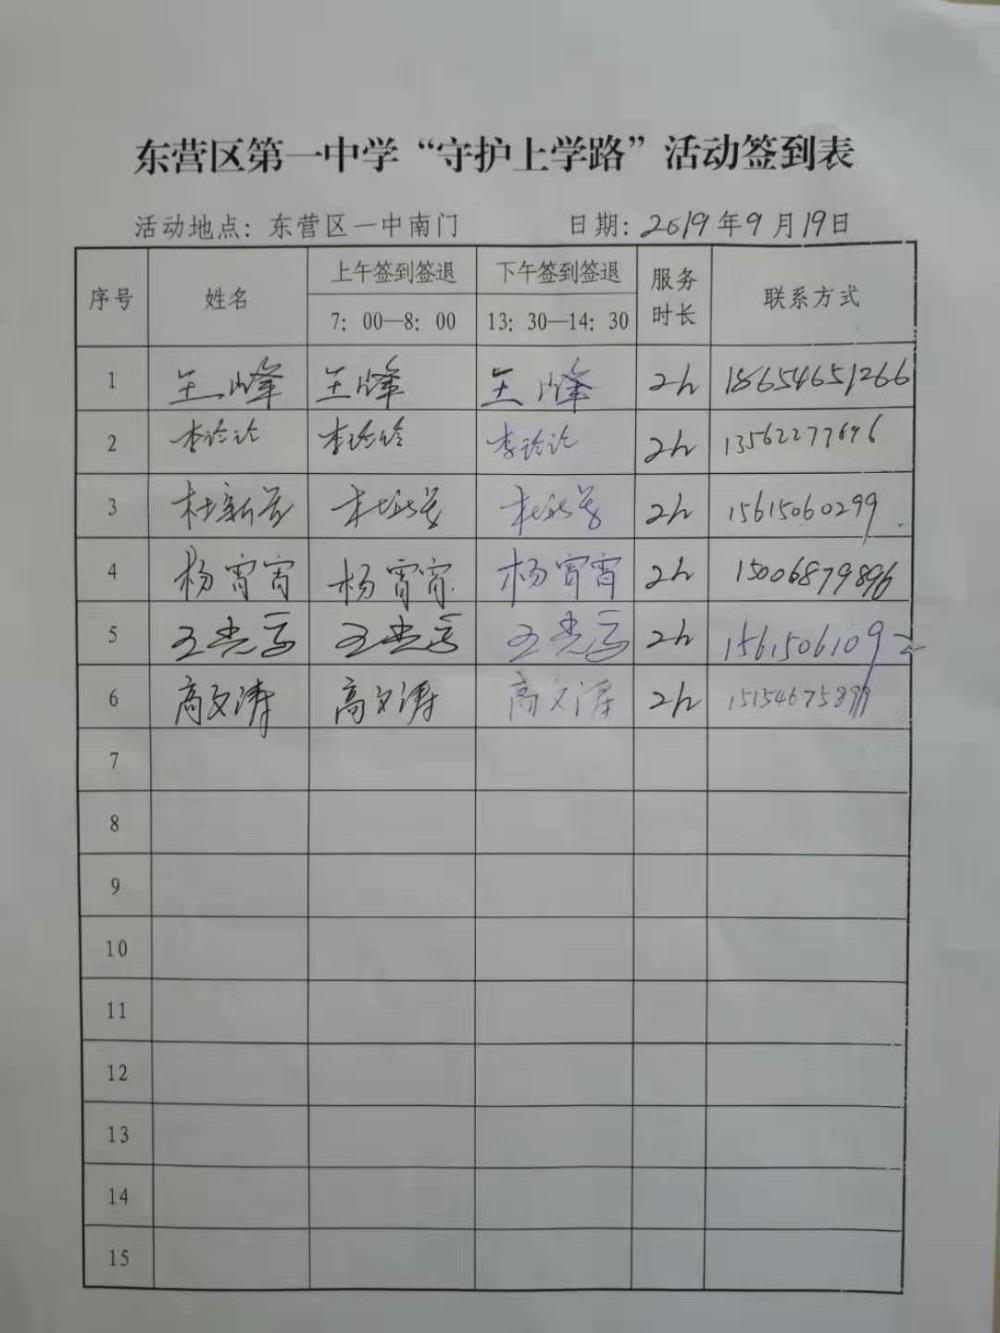 东营区第一中学“守护上学路”活动签到表
活动地点：东营区一中南门 日期：2019年9月19日
序号 姓名 上午签到签退 下午签到签退 服务时长 联系方式
7：00—8：00 13：30—14：30
1 王峰 王峰 王峰 2h 18654651266
2 2h 13562277696
3 2h 15615060299
4 杨宵宵 杨宵宵 杨宵宵 2h 15006879896
5 2h 15615061092
6 高文涛 高文涛 高文涛 2h 15154675899
7
8
9
10
11
12
13
14
15